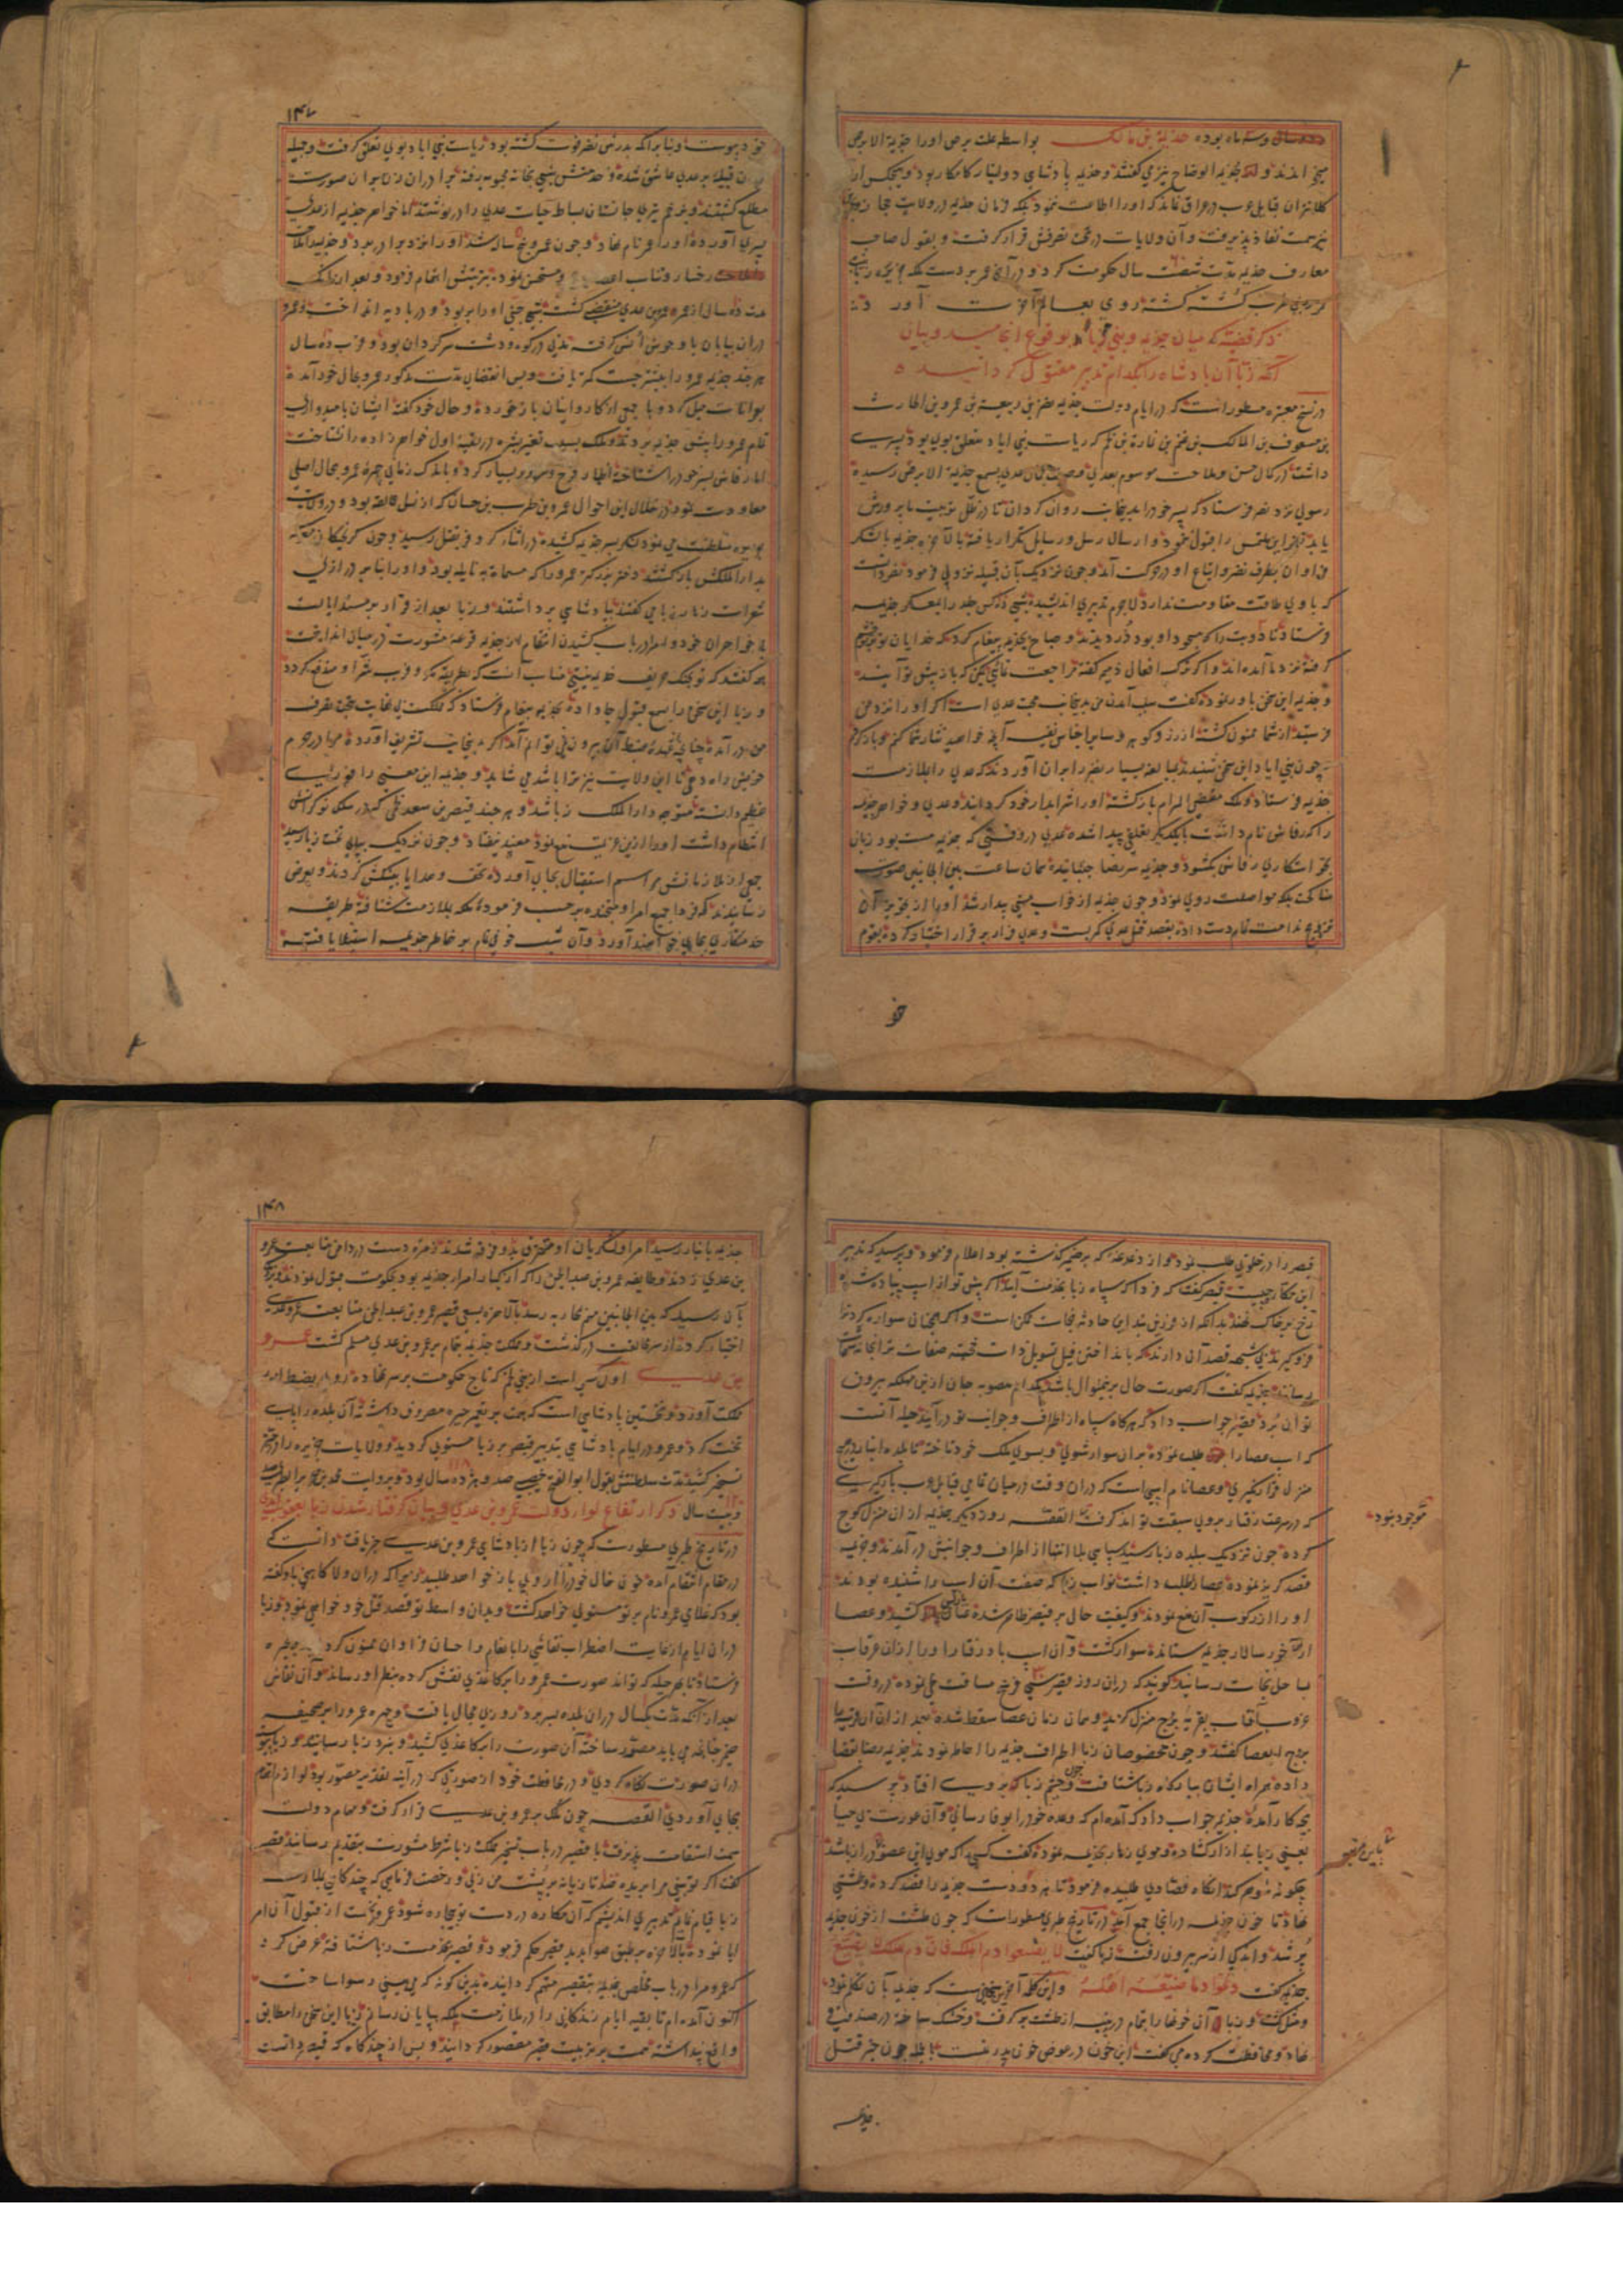 دو سال و سه ماه بوده جذیمة بن مالک بواسطه علت برص او را جذیمة الابرص
میخواندند و جذیمه الوضاح نیز می گفتند و جذیمه پادشاهی دولتیار کامکار بود و هیچکس از
کلانتران قبایل عرب در عراق نماند که او را اطاعت ننمود بلکه فرمان جذیمه در ولایت حجاز نیز
سمت نفاذ پذیرفت و آن ولایات در تحت تصرفش قرار گرفت و بقول صاحب
معارف جذیمه مدت شصت سال حکومت کرد و در آخر عمر بر دست ملکه جزیره زبا بنت
عمرو بن ظرب کشته گشته روی بعالم آخرت آورد
ذکر قضیه که میان جذیمه و بنی ایاد بوقوع انجامید و بیان
آنکه زبا آن پادشاه را بکدام تدبیر مقتول گردانید
در نسخ معتبره مسطور است که در ایام دولت جذیمه نضر بن ربیعة بن عمرو بن الحارث
بن مسعود بن المالک بن غنم بن نمارة بن لخم که ریاست بنی ایاد متعلق بوی بود پسری
داشت در کمال حسن و ملاحت موسوم بعدی و صیت جمال عدی بسمع جذیمة الابرص رسیده
رسولی نزد نضر فرستاد که پسر خود را بدینجانب روان گردان تا در ظل تربیت ما پرورش
یابد نضر این ملتمس را قبول ننمود و ارسال رسل و رسایل تکرار یافته بالآخره جذیمه با لشکر
فراوان بطرف نضر و اتباع او در حرکت آمد و چون نزدیک بآن قبیله نزول فرمود نضر دانست
که با وی طاقت مقاومت ندارد لاجرم تدبیری اندیشیده شبی دزدکس جلد را بمعسکر جذیمه
فرستاد تا دو بت را که مسجود او بود دزدیدند و صباح بجذیمه پیغام کرد که خدایان تو بر تو خشم
گرفته نزد ما آمده اند و اگر ترک افعال ذمیمه گفته مراجعت نمائی ممکن که باز پیش تو آیند
و جذیمه این سخن باور نموده گفت سبب آمدن من بدینجانب محبت عدی است اگر او را نزد من
فرستید از شما ممنون گشته از زر و گوهر و سایر اجناس نفیسه آنچه خواهید نثار شما کنم و باز گردم
چون بنی ایاد این سخن شنیدند بمبالغه بسیار نضر را بران آوردند که عدی را بملازمت
جذیمه فرستاد و ملک مقضی المرام بازگشته او را شرابدار خود گردانید و عدی و خواهر جذیمه
را که رقاش نام داشت بایکدیگر تعلقی پیدا شده عدی در وقتی که جذیمه مست بود زبان
بخواستگاری رقاش بگشود و جذیمه سر رضا جنبانیده همان ساعت بین الجانبین صورت
مناکحت بلکه مواصلت روی نمود و چون جذیمه از خواب مستی بیدار شد او را از تجویز آن
تزویج ندامت تمام دست داده بقصد قتل عدی کمر بست و عدی فرار بر قرار اختیار کرده بقوم
خو
۱۴۷
خود پیوست و بنابر آنکه پدرش نضر فوت گشته بود ریاست بنی ایاد بوی تعلق گرفت و جمیله
از آن قبیله بر عدی عاشق شده و خدمتش شبی بخانه محبوبه رفته برادران زن بر آن صورت
مطلع گشتند و بزخم تیر جانستان بساط حیات عدی را در نوشتند اما خواهر جذیمه از عدی
پسری آورده او را عمرو نام نهاد و چون عمرو پنج ساله شد او را نزد برادر برد و جذیمه را ملاحت
رخسار و مستحسن نموده بتربیتش اهتمام فرمود و بعد از آنکه
مدت ده سال از عمر عمرو بن عدی منقضی گشت شبی جنی او را بربود و در بادیه انداخت و عمرو
در آن بیابان با وحوش انس گرفته مدتی در کوه و دشت سرگردان بود و قرب ده سال
هر چند جذیمه عمرو را بیشتر جست کمتر یافت و پس از انقضای مدت مذکور عمرو بحال خود آمده
بآبادانی میل کرد و با جمعی از کاروانیان بازخورده و حال خود گفته ایشان بامیدواری
تمام عمرو را پیش جذیمه بردند و ملک بسبب تغیر بشره در بدیهه اول خواهرزاده را نشناخت
اما رقاش پسر خود را شناخته اظهار فرح و سرور بسیار کرد و باندک زمانی چهره عمرو بحال اصلی
معاودت نمود در خلال این احوال عمرو بن ظرب بن حسان که از نسل عمالقه بود و در ولایت
جزیره سلطنت می نمود لشکر بسر جذیمه کشیده در اثناء کر و فر بقتل رسید و چون گریختگان معرکه
بدار الملکش بازگشتند دختر بزرگتر عمرو را که مسماة به نایله بود و او را بنابر درازی
شعرات زهار زبا می گفتند بپادشاهی برداشتند و زبا بعد از قرار بر مسند ایالت
با خواهران خود و امرا در باب کشیدن انتقام از جذیمه قرعه مشورت در میان انداخت
همه گفتند که تو بجنگ حریف جذیمه نیستی مناسب آنست که بطریق مکر و فریب شر او مندفع گردد
و زبا این سخن را بسمع قبول جا داده بجذیمه پیغام فرستاد که مملکت بی نهایت بتحت تصرف
من در آمده چنانچه از عهده ضبط آن بیرون نمی توانم آمد اگر بدینجانب تشریف آورده مرا در حرم
خویش راه دهی تا این ولایت نیز ترا باشد می شاید و جذیمه این معنی را فوزی
عظیم دانسته متوجه دار الملک زبا شد و هر چند قصیر بن سعد لخمی که در سلک نوکرانش
انتظام داشت او را ازین عزیمت منع نمود مفید نیفتاد و چون نزدیک بپای تخت زبا رسید
جمعی از ملازمانش مراسم استقبال بجای آورده تحف و هدایا پیشکش کردند و بعرض
رسانیدند که فردا جمیع امرا و متجنده بر حسب فرموده ملکه بملازمت شتافته طریقه
خدمتکاری بجای خواهند آورد و آن شب خوفی تمام بر خاطر جذیمه استیلا یافته
قصیر را در خلوتی طلب نمود و از دغدغه که بر ضمیرش گذشته بود اعلام فرمود و پرسید که تدبیر
این کار چیست قصیر گفت که فردا که سپاه زبا بخدمت آیند اگر پیش تو از اسپ پیاده شده
رخ بر خاک نهند بدانکه از فرزین بند این حادثه نجات ممکن است و اگر همچنانی سواره گرد ترا
فروگیرند بی شبهه قصد آن دارند که بانداختن فیل تسویل ذات خجسته صفات ترا بخانه شهمات
رسانند جذیمه گفت اگر صورت حال برینمنوال باشد بکدام منصوبه جان ازین مهلکه بیرون
توان برد قصیر جواب داد که هرگاه سپاه از اطراف و جوانب تو در آیند حیله آنست
که اسب عصا را طلب نموده بران سوار شوی و بسوی ملک خود تاخته تا بلده انبار هیچ
منزل قرار نگیری و عصا نام اسپی است که در آن وقت در میان تمامی قبایل عرب بارگیری
که در سرعت رفتار بر وی سبقت تواند گرفت القصه روز دیگر جذیمه از ان منزل کوچ
موجود نبود
کرده چون نزدیک ببلده زبا رسید سپاهی بلا انتها از اطراف و جوانبش در آمدند و جذیمه
قصد گریز نموده عصا را طلب داشت نواب زبا که صفت آن اسپ را شنیده بودند
او را از رکوب آن منع نمودند و کیفیت حال بر قصیر ظاهر شده عنان کشید و عصا
از آخورسالار جذیمه ستانده سوار گشت و آن اسب بادرفتار او را از آن غرقاب
بساحل نجات رسانید گویند که در آن روز قصیر سی فرسخ مسافت طی نموده در وقت
غروب آفتاب بقریه برج منزل گزید و همان زمان عصا سقط شده بعد از ان آن قریه را
برج العصا گفتند و چون مخصوصان زبا اطراف جذیمه را احاطه نمودند جذیمه رضا بقضا
داده همراه ایشان ببارگاه زبا شتافت و چون چشم زبا بر وی افتاد پرسید که
بچه کار آمده جذیمه جواب داد که آمده ام که وعده خود را بوفا رسانی و آن عورت بی حیا
یعنی زبا بند ازار گشاده و موی زهار بجذیمه نموده گفت کسی را که موی این عضو در از باشد
باین مرتبه
چگونه شوهر کند آنگاه فصادی طلبیده فرمود تا هر دو دست جذیمه را فصد کرده و طشتی
نهاد تا خون جذیمه در آنجا جمع آید در تاریخ طبری مسطور است که چون طشت از خون جذیمه
پر شد و اندکی از سر بیرون رفت زبا گفت لا یضیعوا دم الملک فان دم الملک لا یضیع
جذیمه گفت دعوا دما ضیعه اهله و این کلمه آخرین سخنی است که جذیمه بآن تکلم نمود
و هلاک گشت و زبا آن خونها را بتمام در پنبه از طشت برگرفت و خشک ساخته در صندوقی
نهاد و محافظت کرده می گفت این خون در عوض خون پدر منست بالجمله چون خبر قتل
جذیمه
۱۴۸
جذیمه بانبار رسید امرا و لشکریان او متفرق بدو فرقه شدند زمره دست در دامن متابعت عمرو
بن عدی زدند و طایفه عمرو بن عبد الجن را که از کبار امراء جذیمه بود بحکومت قبول نمودند و نزدیک
بآن رسید که بین الجانبین مهم بمحاربه رسد بالآخره بسعی قصیر عمرو بن عبد الجن متابعت عمرو عدی
اختیار کرده از سر مخالفت درگذشت و ملک جذیمه بتمام بر عمرو بن عدی مسلم گشت عمرو
بن عدی اول کسی است از بنی لخم که تاج حکومت بر سر نهاده روی بضبط امور
مملکت آورد و نخستین پادشاهی است که همت بر تعمیر حیره مصروف داشته آن بلده را پای
تخت کرد و عمرو در ایام پادشاهی بتدبیر قصیر بر زبا مستولی گردید و ولایات جزیره را در حیز
تسخیر کشید مدت سلطنتش بقول ابو الفتح خبیصی صد و هژده سال بود و بروایت محمد بن جریر الطبری صد
و بیست سال ذکر ارتفاع لواء دولت عمرو بن عدی و بیان گرفتار شدن زبا بعقوبت
در تاریخ طبری مسطور است که چون زبا از پادشاهی عمرو بن عدی خبر یافت دانست که
در مقام انتقام آمده خون خال خود را از وی باز خواهد طلبید زیرا که در آن ولا کاهنی با وی گفته
بود که غلامی عمرو نام بر تو مستولی خواهد گشت و بدان واسطه تو قصد قتل خود خواهی نمود و زبا
در آن ایام از غایت اضطراب نقاشی را بانعام و احسان فراوان ممنون کرده بحیره
فرستاد تا بهر حیله که تواند صورت عمرو را بر کاغذی نقش کرده بنظر او رساند و آن نقاش
بعد از آنکه مدت یکسال در آن بلده بسر برد روزی مجال یافت و چهره عمرو را بر صحیفه
ضمیر چنانچه می باید مصور ساخته آن صورت را بر کاغذی کشید و بنزد زبا رسانید و زبا پیوسته
در آن صورت نگاه کردی و در محافظت خود از صورتی که در آینه تقدیر مصور بود لوازم اهتمام
بجای آوردی القصه چون ملک بر عمرو بن عدی قرار گرفت و مهام دولت
سمت استقامت پذیرفت با قصیر در باب تسخیر مملکت زبا شرط مشورت بتقدیم رسانید قصیر
گفت اگر تو بینی مرا بریده صد تازیانه بر پشت من زنی و رخصت فرمایی که چندگاهی بملازمت
زبا قیام نمایم تدبیری اندیشم که آن مکاره در دست تو بیچاره شود عمرو نخست از قبول آن امر
ابا نموده بالآخره بر طبق صوابدید قصیر حکم فرمود و قصیر بخدمت زبا شتافته عرض کرد
که عمرو مرا در باب مخلص جذیمه بتقصیر متهم گردانیده بدین گونه که می بینی رسوا ساخت
اکنون آمده ام تا بقیه ایام زندگانی را در ملازمت ملکه بپایان رسانم زبا این سخن را مطابق
واقع پنداشته همت بر تربیت قصیر مقصور گردانید و پس از چندگاه که قصیر دانست